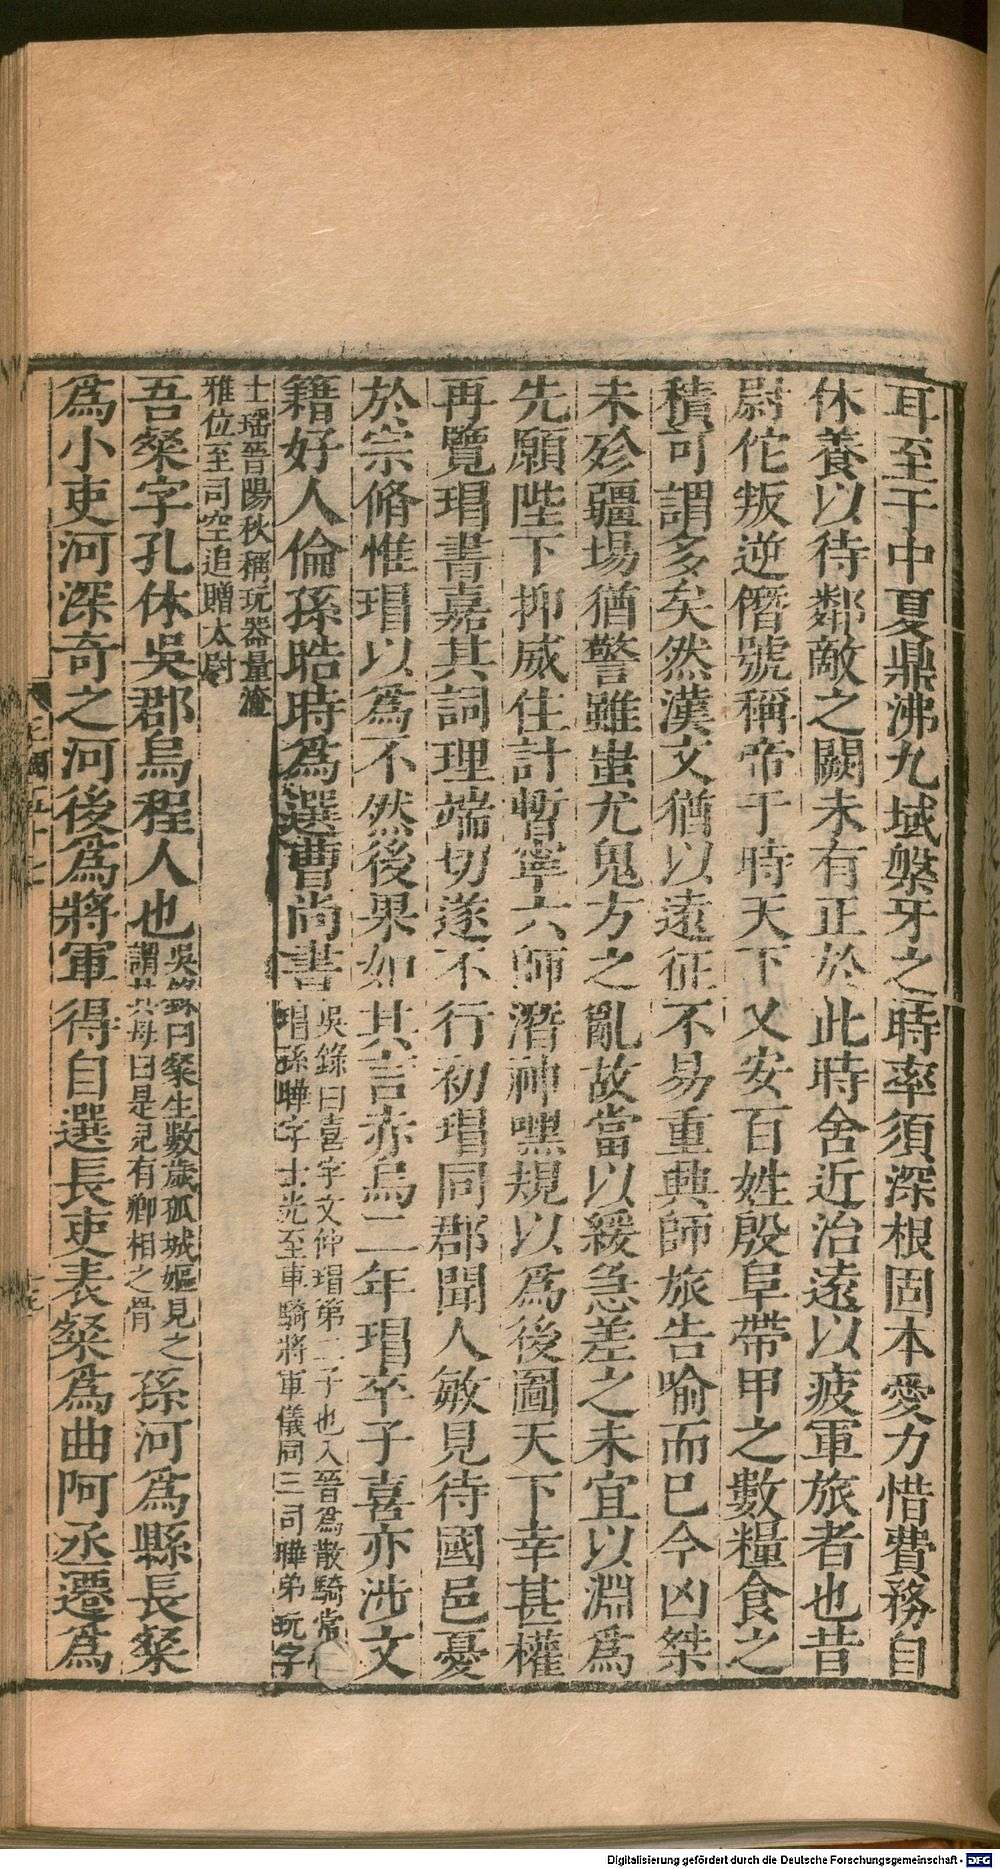 耳至于中夏鼎沸九域槃牙之時率須深根固本愛力惜費務自
休養以待鄰敵之闕未有正於此時舍近治遠以疲軍旅者也昔
尉佗叛逆僭號稱帝于時天下乂安百姓殷阜帶甲之數糧食之
積可謂多矣然漢文猶以遠征不易重興師旅告喻而已今凶桀
未殄疆場猶警雖蚩尤鬼方之亂故當以緩急差之未宜以淵爲
先願陛下抑威住計暫寧六師潛神嘿規以爲後圖天下幸甚權
再覽瑁書嘉其詞理端切遂不行初瑁同郡聞人敏見待國邑憂
於宗脩惟瑁以爲不然後果如其言亦烏二年瑁卒子喜亦涉文
籍好人倫孫晧時爲選曹尚書
吳錄曰喜字文仲瑁第二子也入晉爲散騎常
瑁孫曄字士光至車騎將軍儀同三司曄弟玩字
士瑶晉陽秋稱玩器量淹
雅位至司空追贈太尉
吾粲字孔休吳郡烏程人也
吳錄曰粲生數歲孤城嫗見之
謂其母曰是兒有卿相之骨
孫河爲縣長粲
爲小吏河深奇之河後爲將軍得自選長吏表粲爲曲阿丞遷爲
Digitalisierung gefördert durch die Deutsche Forschungsgemeinschaft - DFG